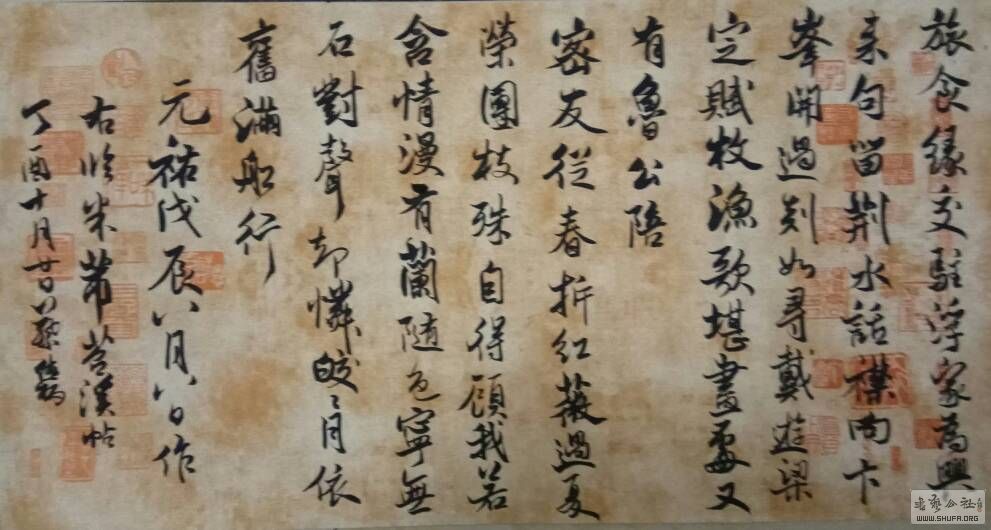 旅食緣交駐浮家為興
来句留荆水話襟向卞
峯開過剡如尋戴遊梁
定賦枚漁歌堪畫處又
有魯公陪
密友從春拆紅薇過夏
榮團枝殊自得顧我若
含情漫有蘭隨色寧無
石對聲却憐皎々月依
舊滿船行
元祐戊辰八月八日作
右临米芾苕溪帖
丁酉十月廿日
WWW.SHUFA.ORG